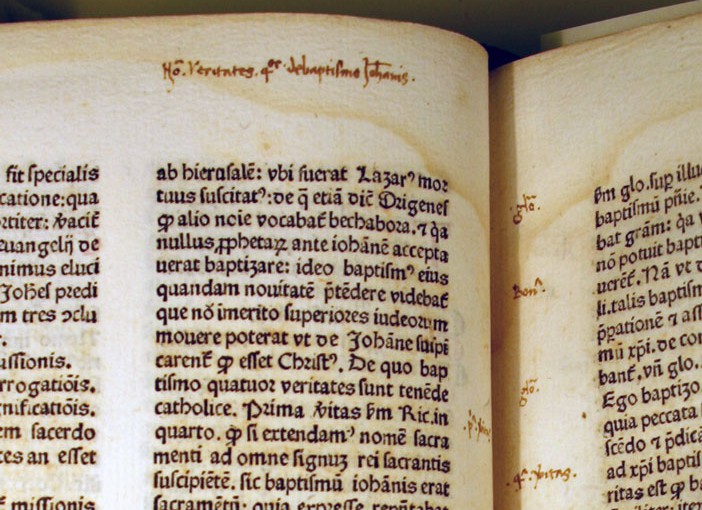 No᷃. Veritates. qͣtͬ. de baptismo Joh̄anis.
fit specialis
catione: qua
rtiter: v̾aciť
euangelij de
nimus eluci
Joh̄es predi
m tres ꝯclu
.
ussionis.
rrogatiõis.
gnificatiõis.
em sacerdo
tes an esset
ť missionis
ab hierusalē: vbi fuerat Lazarꝰ mor
tuus suscitatꝰ: de q̄ etiã dič Origenes
ꝙ alio noīe vocabať bechabora. ⁊ q̇a
nullus ꝓphetaꝝ ante iohānē accepta
uerat baptizare: ideo baptismꝰ eius
quandam nouitatē p̄tēdere videbať
que nõ īmerito superiores iudeorum
mouere poterat vt de Johāne suspi
carenť ꝙ esset Christꝰ. De quo bap
tismo quatuor veritates sunt tenēde
catholice. Prima v̾itas ẜm Ric. in
quarto. ꝙ si extendamꝰ nomē sacra
menti ad omne signuꝫ rei sacrantis
suscipiētē. sic baptismũ iohānis erat
sacramētũ: quia expresse
glõ.
Bonͣ.
glõ.
ẜm glo. sup illu
baptismũ pñie.
bat grãm: q̇a
nõ potuit bapt
uerēť. Nã vt d
li. talis baptism
p̄paratione ⁊ ass
mũ xp̃i. de co
banť. vñ glo.
Ego baptizo
quia peccata
scēdo ⁊ p̄dicã
ad xp̃i baptis
ritas est ꝙ b